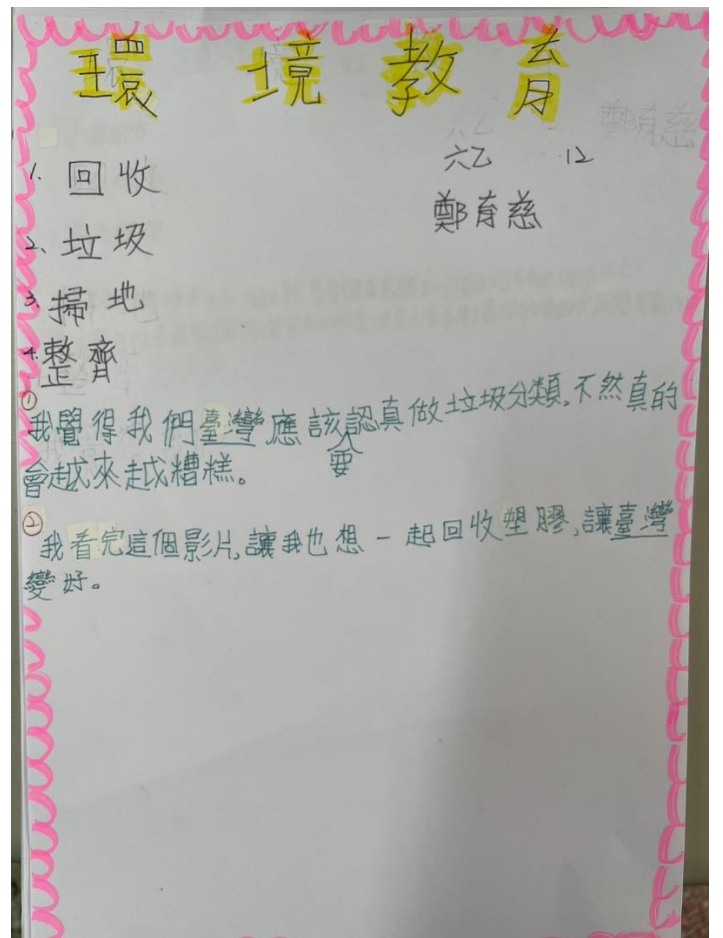 環境教育
六乙 12
鄭育慈
1. 回收
2、垃圾
3、掃地
4.整齊
①
我覺得我們臺灣應該要認真做垃圾分類,不然真的
會越來越糟糕。
②
我看完這個影片,讓我也想一起回收塑膠,讓臺灣
變好。